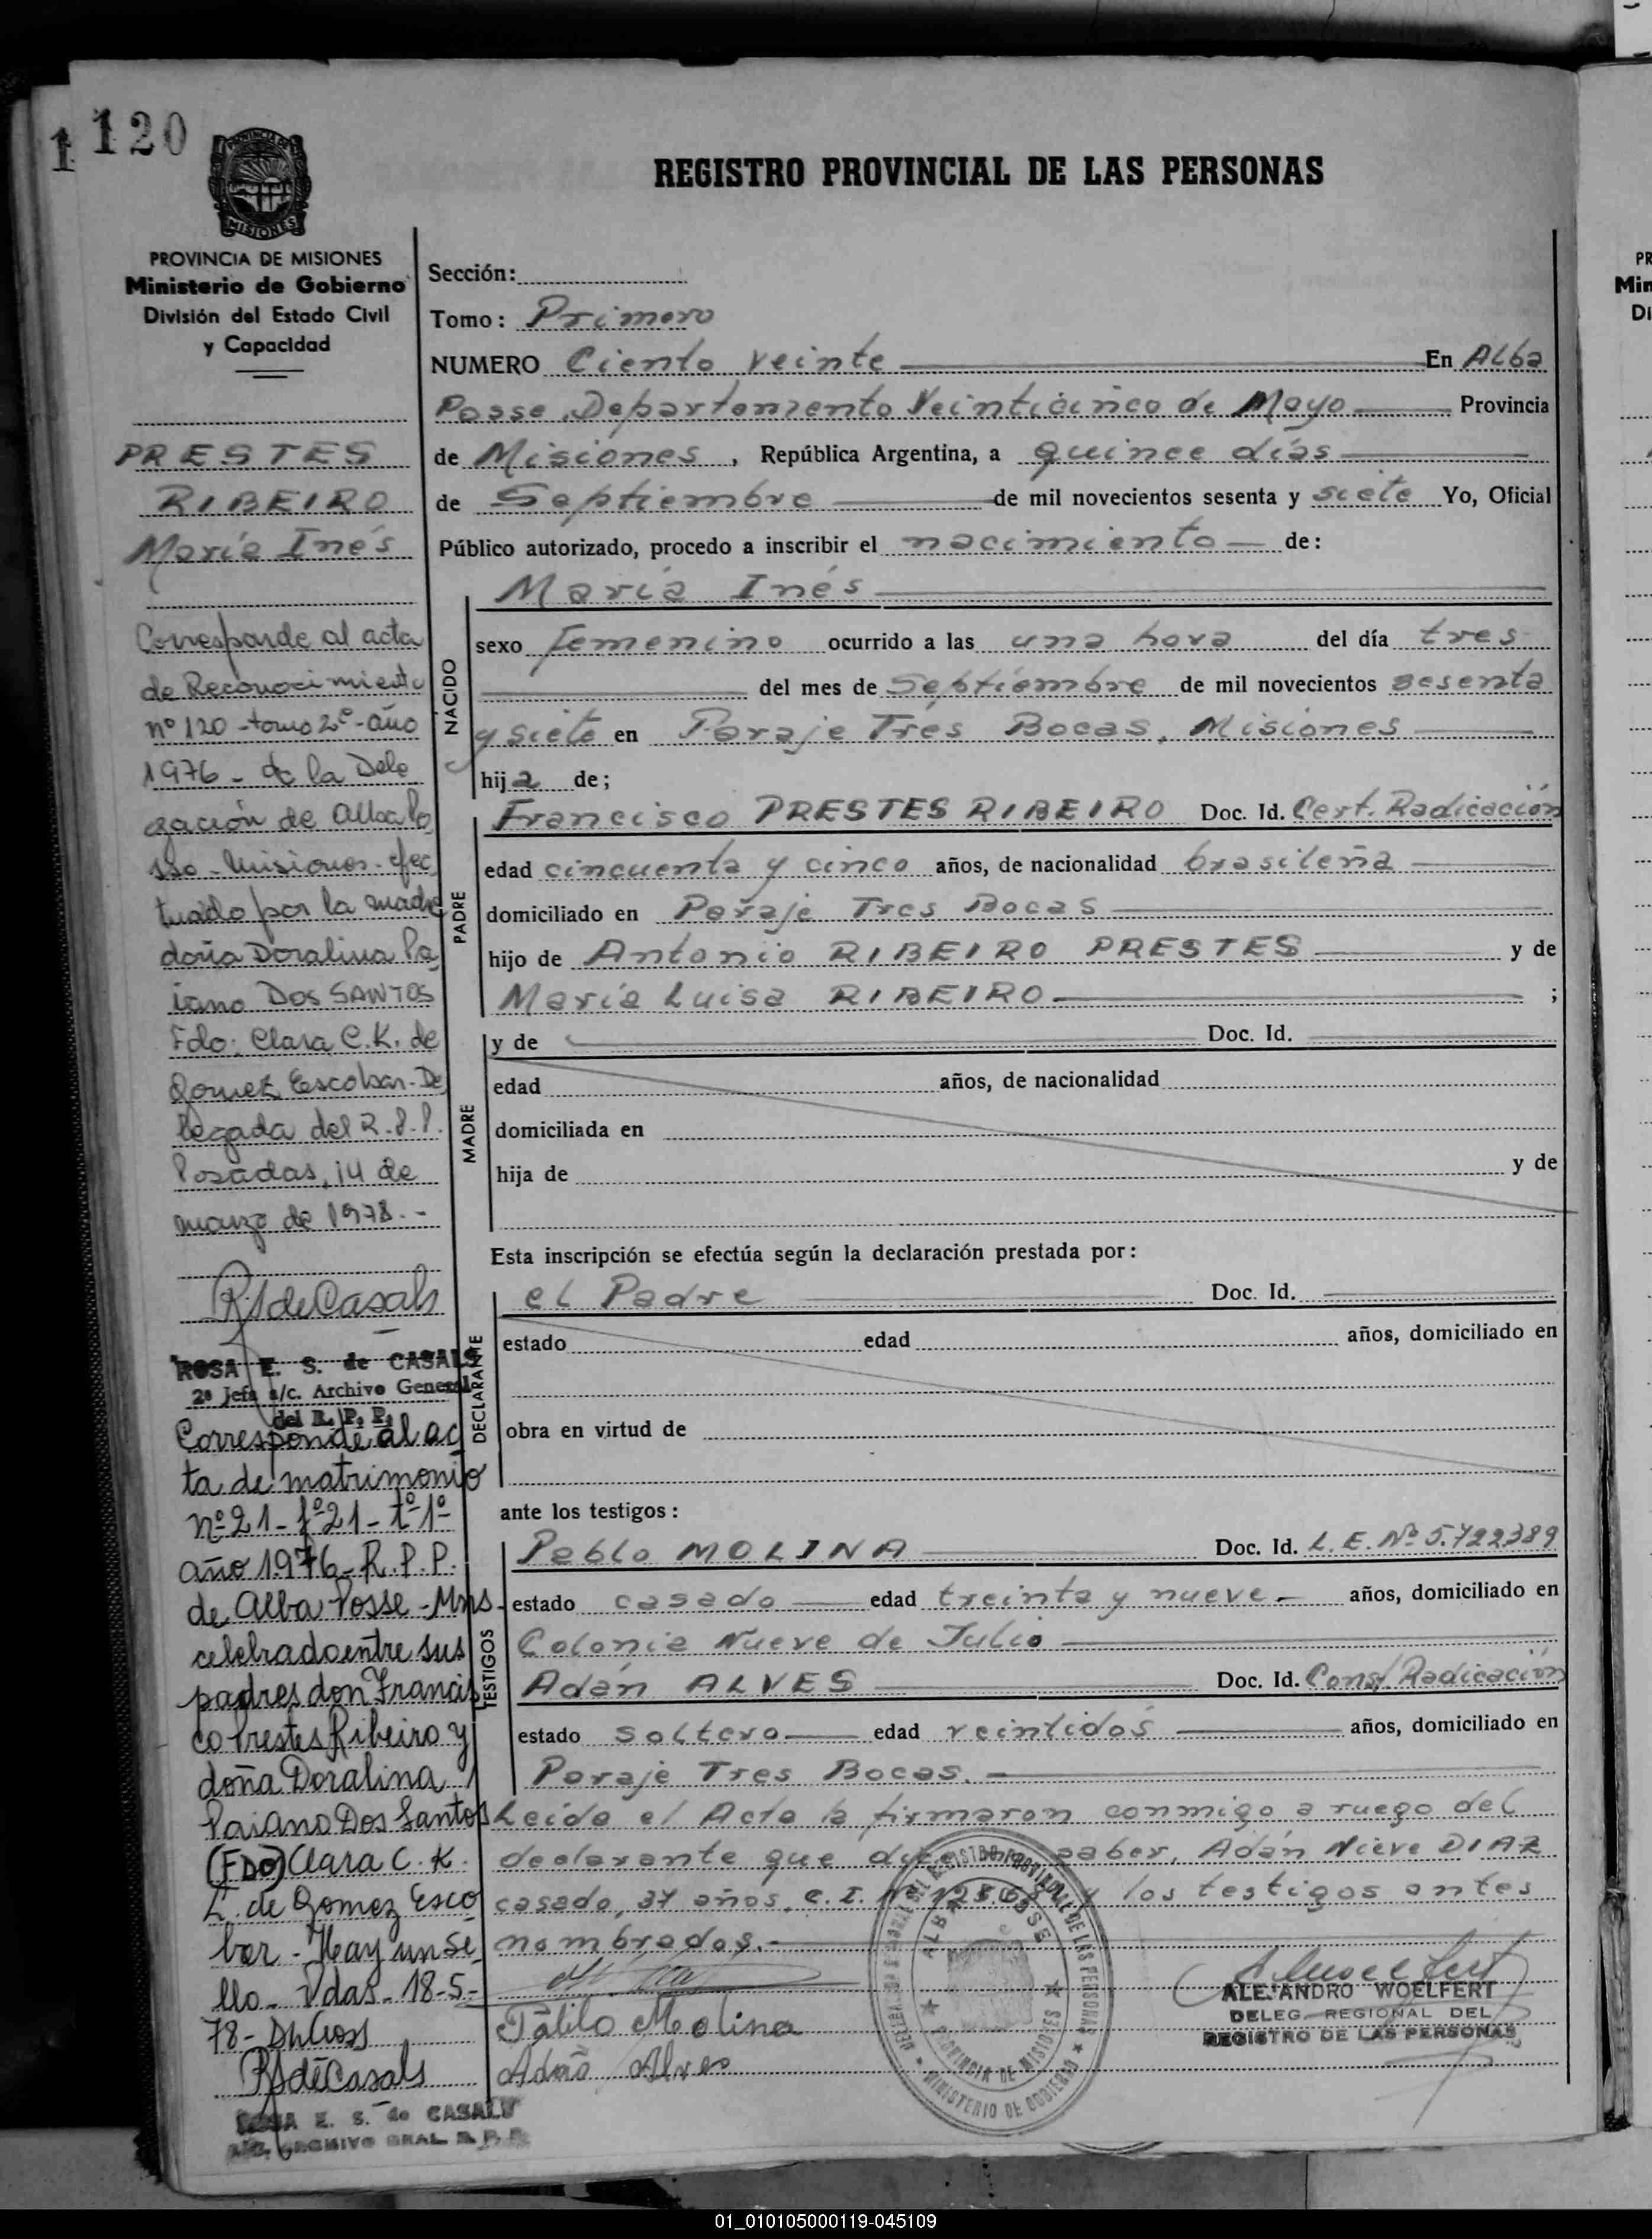 1 120
REGISTRO PROVINCIAL DE LAS PERSONAS
MISIONES
PROVINCIA DE MISIONES
Ministerio de Gobierno
División del Estado Civil
y Capacidad
PRESTES
RIBEIRO
María Inés
Corresponde al acta
de Reconocimiento
nº 120 - tomo 2º - año
1976 - de la Dele
gación de Alba Po
sse - Misiones - efec
tuado por la madre
doña Doralina Pa
iano DOS SANTOS
Fdo: Clara C. K. de
Gomez Escobar - De
legada del R. P. P.
Posadas, 14 de
marzo de 1978.-
RSdeCasals
ROSA E. S. de CASALS
2ª Jefa a/c. Archivo General
del R. P. P.
Corresponde al ac
ta de matrimonio
nº 21 - fº 21 - tº 1º -
año 1976 - R. P. P.
de Alba Posse - Mns -
celebrado entre sus
padres don Francis
co Prestes Ribeiro y
doña Doralina
Paiano Dos Santos
(FDO) Clara C. K.
L. de Gomez Esco
bar - Hay un se
llo - Pdas - 18-5-
78 -
RSdeCasals
ROSA E. S. de CASALS
ARCHIVO GRAL R. P. P.
Sección:
Tomo: Primero
NUMERO Ciento veinte En Alba
Posse, Departamento Veinticinco de Mayo Provincia
de Misiones, República Argentina, a quince días
de Septiembre de mil novecientos sesenta y siete Yo, Oficial
Público autorizado, procedo a inscribir el nacimiento de:
NACIDO
María Inés
sexo femenino ocurrido a las una hora del día tres
del mes de Septiembre de mil novecientos sesenta
y siete en Paraje Tres Bocas, Misiones
hija de;
PADRE
Francisco PRESTES RIBEIRO Doc. Id. Cert. Radicación
edad cincuenta y cinco años, de nacionalidad brasileña
domiciliado en Paraje Tres Bocas
hijo de Antonio RIBEIRO PRESTES y de
María Luisa RIBEIRO ;
MADRE
y de Doc. Id.
edad años, de nacionalidad
domiciliada en
hija de y de
Esta inscripción se efectúa según la declaración prestada por:
DECLARANTE
el Padre Doc. Id.
estado edad años, domiciliado en
obra en virtud de
ante los testigos:
TESTIGOS
Pablo MOLINA Doc. Id. L. E. Nº 5.722389
estado casado edad treinta y nueve.- años, domiciliado en
Colonia Nueve de Julio
Adán ALVES Doc. Id. Const. Radicación
estado soltero edad veintidós años, domiciliado en
Paraje Tres Bocas.
Leída el Acta la firmaron conmigo a ruego del
declarante que dice no saber, Adán Nieve DIAZ
casado, 37 años, C. I. Nº y los testigos antes
nombrados.-
Pablo Molina
Adão Alves
REGISTRO PROVINCIAL DE LAS PERSONAS
ALBA POSSE
PROVINCIA DE MISIONES
MINISTERIO DE GOBIERNO
ALEJANDRO WOELFERT
DELEG. REGIONAL DEL
REGISTRO DE LAS PERSONAS
PR
Min
Di
01_010105000119-045109